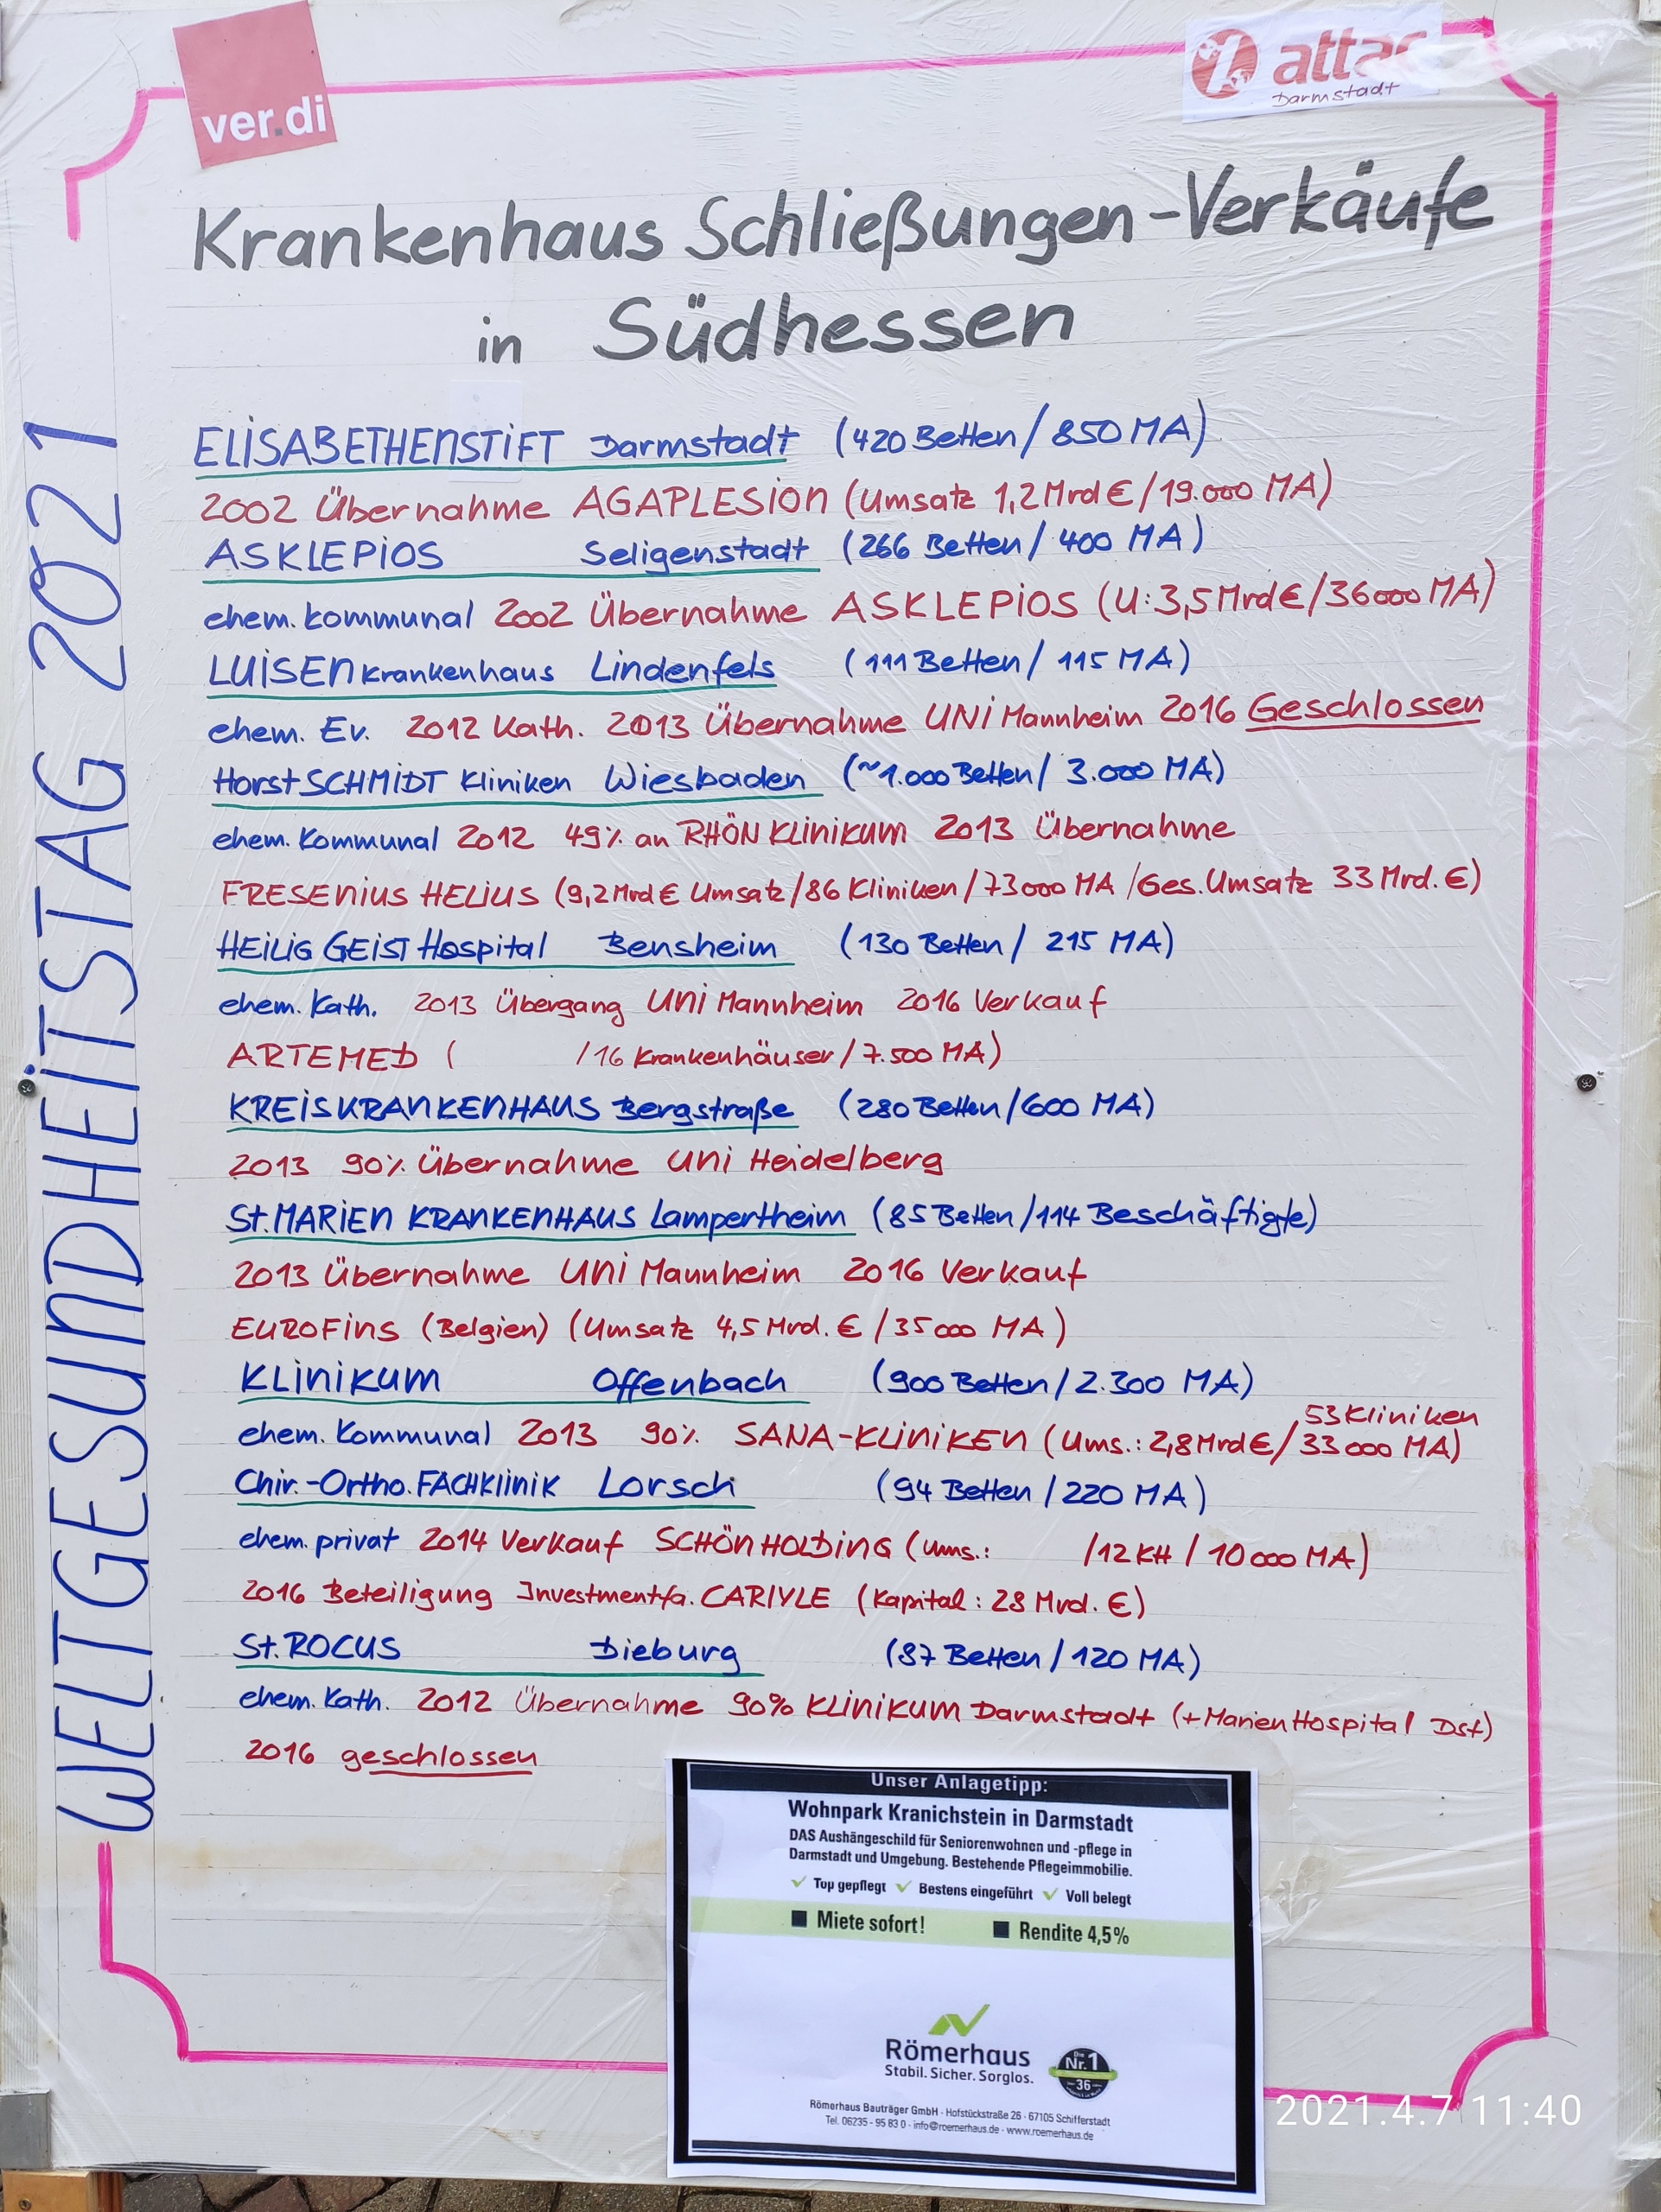 ver.di
attac
Darmstadt
Krankenhaus Schließungen-Verkäufe
in Südhessen
WELTGESUNDHEITSTAG 2021
ELISABETHENSTIFT Darmstadt (420 Betten/850 MA)
2002 Übernahme AGAPLESION (Umsatz 1,2 Mrd € / 19.000 MA)
ASKLEPIOS Seligenstadt (266 Betten/ 400 MA)
ehem. kommunal 2002 Übernahme ASKLEPIOS (U: 3,5 Mrd € / 36000 MA)
LUISENkrankenhaus Lindenfels (111 Betten/ 115 MA)
ehem. Ev. 2012 Kath. 2013 Übernahme UNI Mannheim 2016 Geschlossen
Horst SCHMIDT Kliniken Wiesbaden (~1.000 Betten/ 3.000 MA)
ehem. Kommunal 2012 49% an RHÖN KLINIKUM 2013 Übernahme
FRESENIUS HELIUS (9,2 Mrd € Umsatz/86 Kliniken/73000 MA /Ges. Umsatz 33 Mrd. €)
HEILIG GEIST Hospital Bensheim (130 Betten/ 215 MA)
ehem. Kath. 2013 Übergang UNI Mannheim 2016 Verkauf
ARTEMED ( /16 Krankenhäuser/7.500 MA)
KREISKRANKENHAUS Bergstraße (280 Betten/600 MA)
2013 90% Übernahme Uni Heidelberg
St. MARIEN KRANKENHAUS Lampertheim (85 Betten/114 Beschäftigte)
2013 Übernahme UNI Mannheim 2016 Verkauf
EUROFINS (Belgien) (Umsatz 4,5 Mrd. € / 35000 MA)
KLINIKUM Offenbach (900 Betten/2.300 MA)
53 Kliniken
ehem. Kommunal 2013 90% SANA-KLINIKEN (Ums.: 2,8 Mrd € / 33000 MA)
Chir.-Ortho. FACHKLINIK Lorsch (94 Betten/220 MA)
ehem. privat 2014 Verkauf SCHÖN HOLDING (Ums.: /12 KH / 10000 MA)
2016 Beteiligung Investmentfa. CARLYLE (Kapital: 28 Mrd. €)
St. ROCUS Dieburg (87 Betten/120 MA)
ehem. Kath. 2012 Übernahme 90% KLINIKUM Darmstadt (+ Marien Hospital Dst)
2016 geschlossen
Unser Anlagetipp:
Wohnpark Kranichstein in Darmstadt
DAS Aushängeschild für Seniorenwohnen und -pflege in
Darmstadt und Umgebung. Bestehende Pflegeimmobilie.
✓ Top gepflegt ✓ Bestens eingeführt ✓ Voll belegt
■ Miete sofort! ■ Rendite 4,5%
Römerhaus
Stabil. Sicher. Sorglos.
Die
Nr.1
36
Römerhaus Bauträger GmbH · Hofstückstraße 26 · 67105 Schifferstadt
Tel. 06235 - 95 83 0 · info@roemerhaus.de · www.roemerhaus.de
2021.4.7 11:40